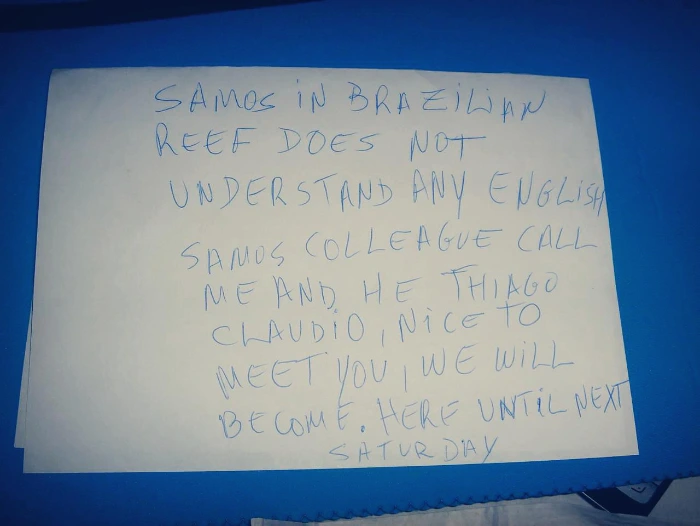 SAMOS iN BRAZiLiAN
REEF DOES NOT
UNDERSTAND ANY ENGLiSH
SAMOS COLLEAGUE CALL
ME AND HE THIAGO
CLAUDiO, NiCE TO
MEET YOU, WE WiLL
BECOME. HERE UNTiL NEXT
SATURDAY